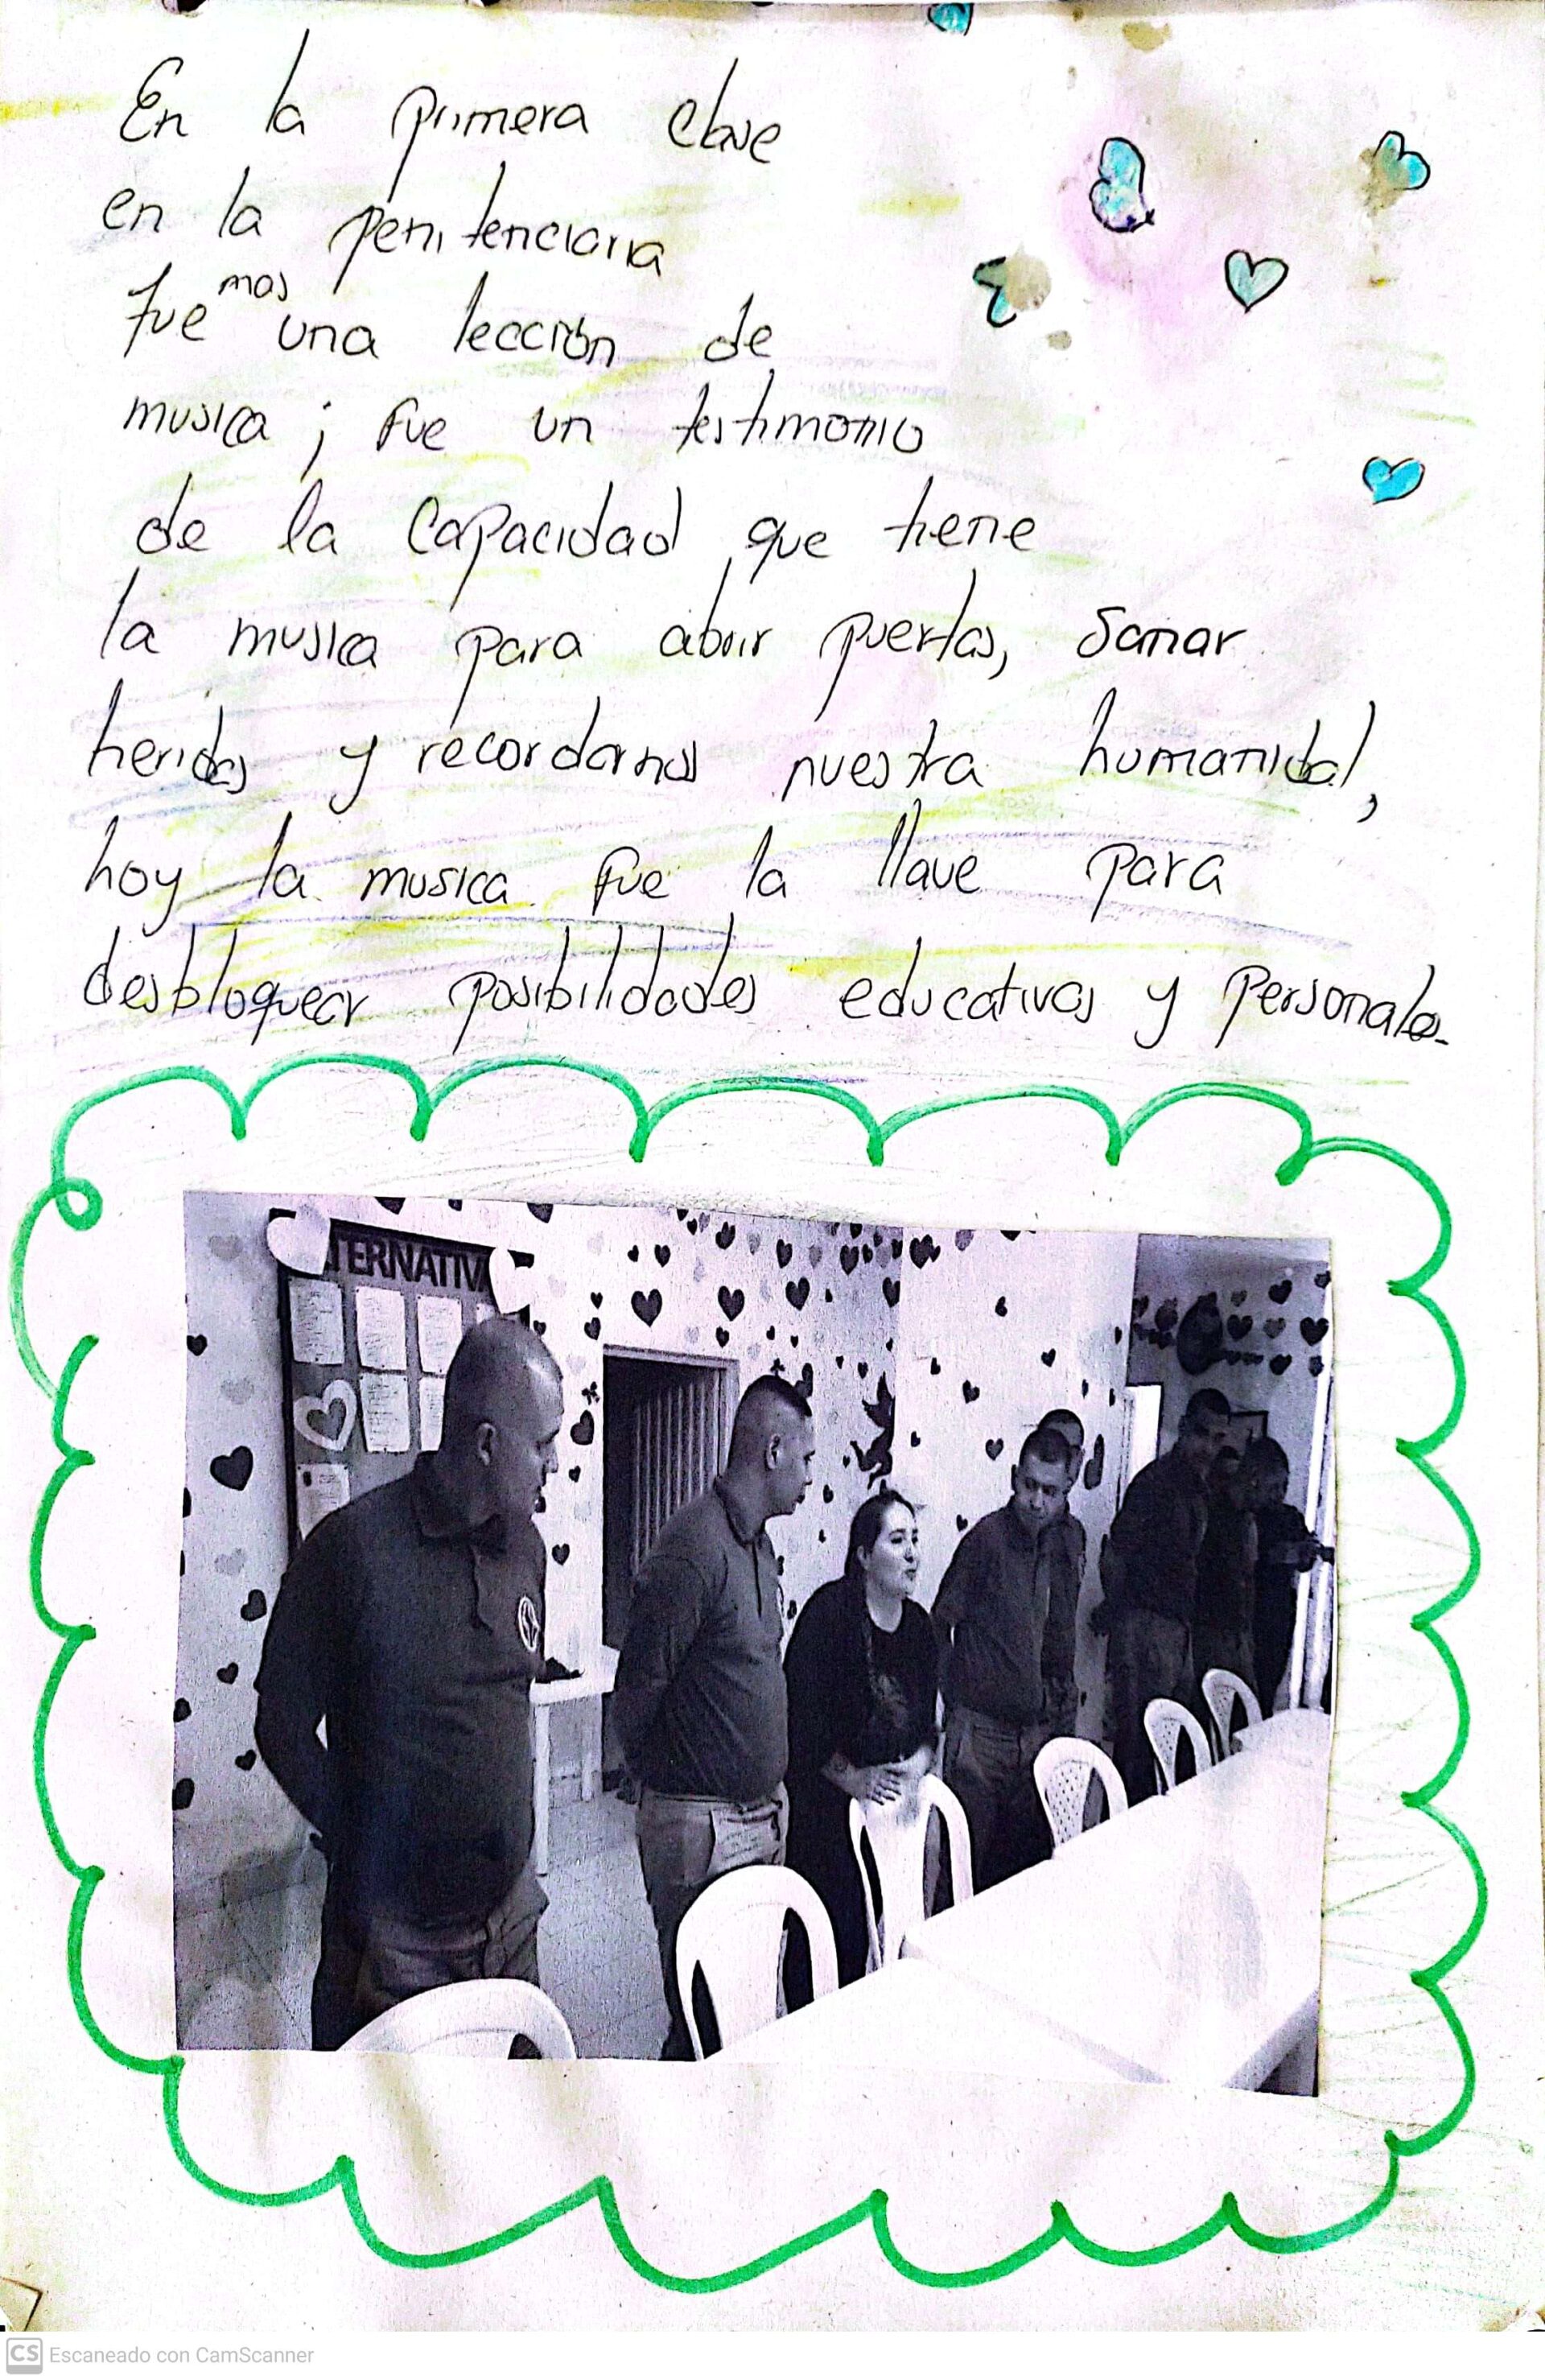 En la primera clase
en la penitenciaria
fue mas una lección de
musica ; fue un testimonio
de la capacidad que tiene
la musica para abrir puertas, Sanar
heridas y recordarnos nuestra humanidad,
hoy la musica fue la llave para
desbloquear posibilidades educativas y personales.
TERNATIV
CS Escaneado con CamScanner